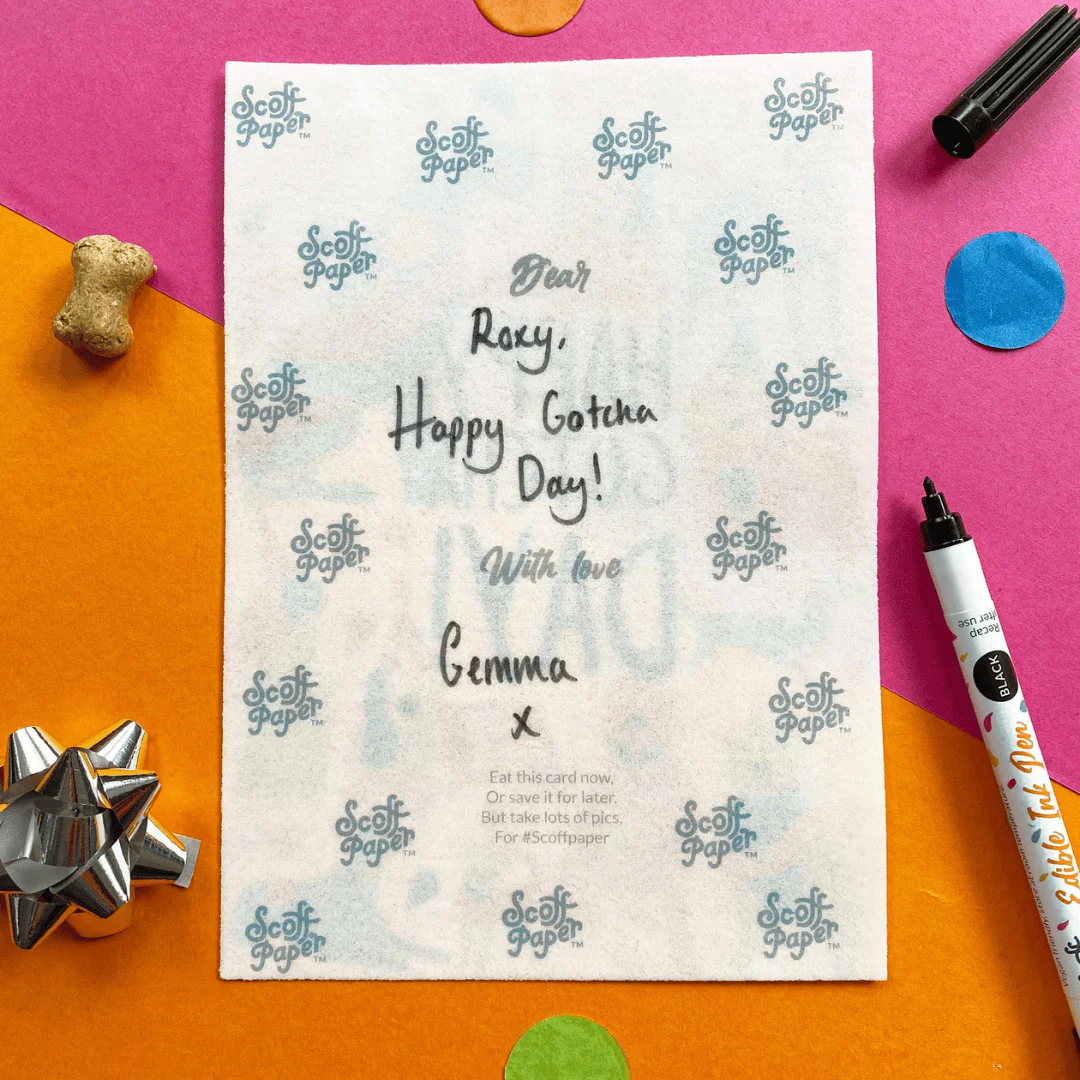 Scoff
Paper™
Scoff
Paper™
Scoff
Paper™
Scoff
Paper™
Scoff
Paper™
Scoff
Paper™
Dear
Roxy,
Happy Gotcha
Day!
Scoff
Paper™
Scoff
Paper™
Scoff
Paper™
Scoff
Paper™
With love
Gemma
x
Scoff
Paper™
Scoff
Paper™
Eat this card now,
Or save it for later.
But take lots of pics,
For #Scoffpaper
Scoff
Paper™
Scoff
Paper™
Scoff
Paper™
Scoff
Paper™
Scoff
Paper™
Recap
after use
BLACK
Edible Ink Pen